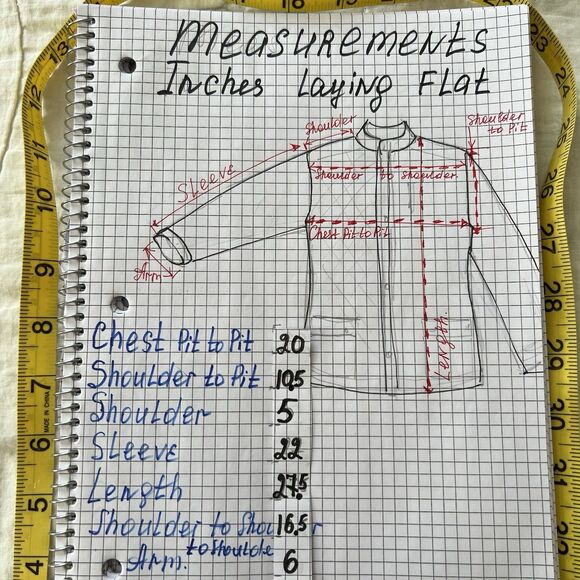 Measurements
Inches Laying Flat
Shoulder
Shoulder to Pit
Sleeve
Shoulder to shoulder
Chest Pit to Pit
Arm
Length
Chest Pit to Pit 20
Shoulder to Pit 10,5
Shoulder 5
Sleeve 22
Length 27,5
Shoulder to Shou r 16,5
to Shoulde
Arm. 6
12
11
10
9
8
7
MADE IN CHINA
6
5
4
18
23
24
25
26
27
28
29
30
31
32
33